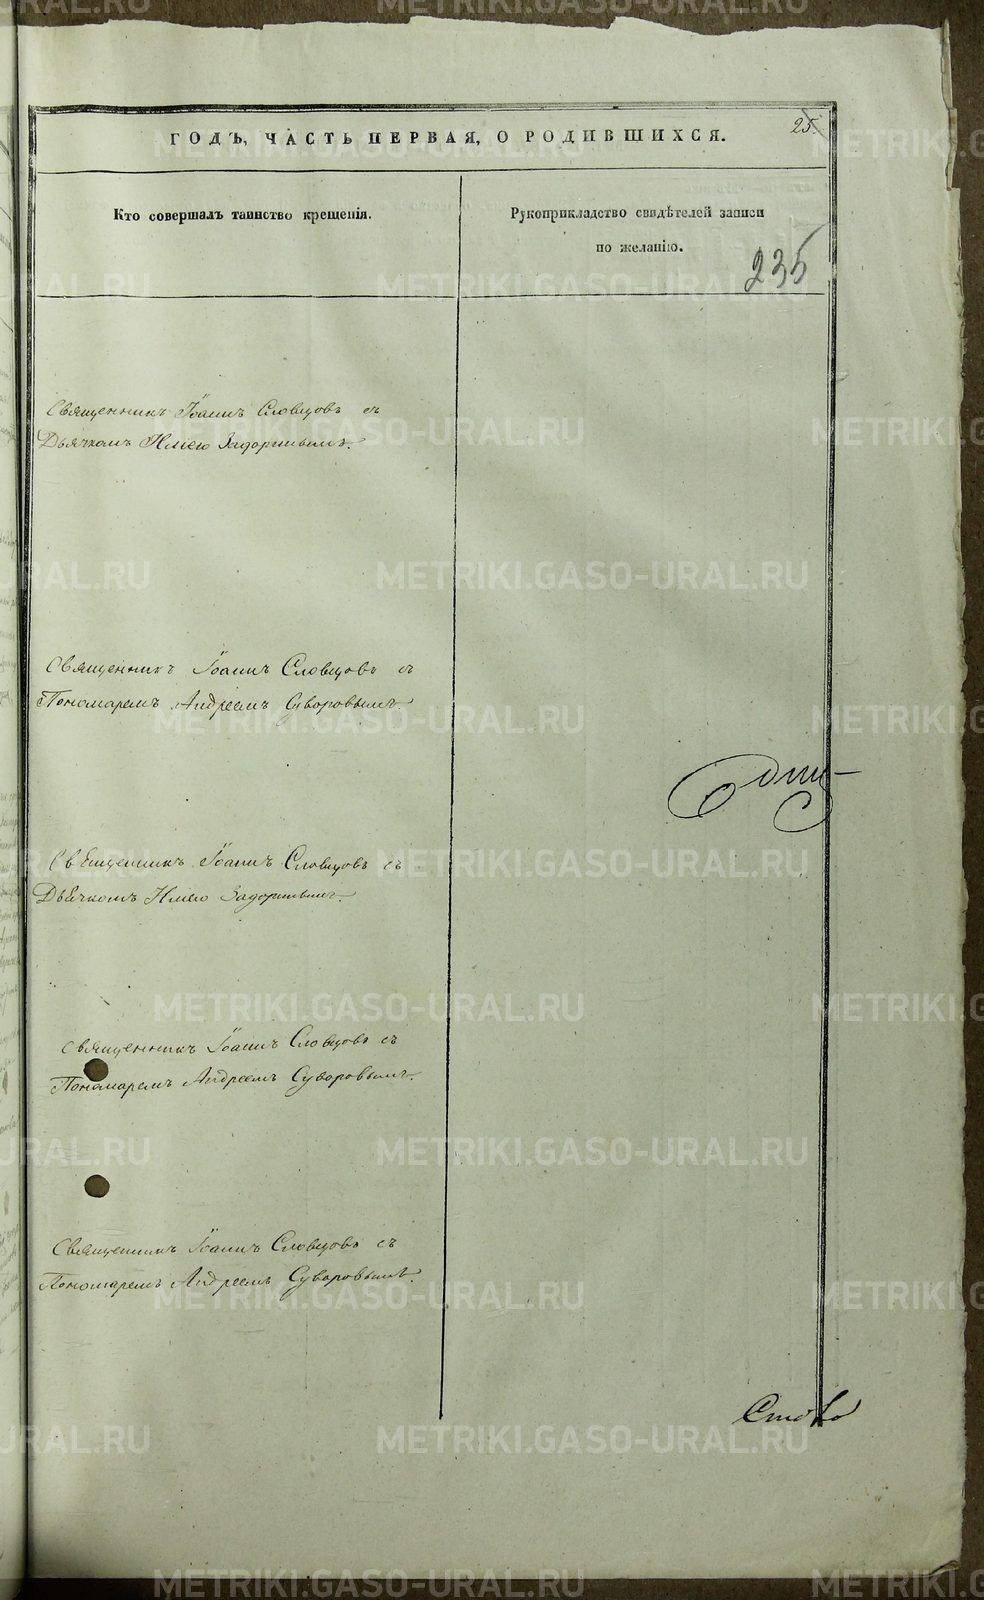 ГОДЪ, ЧАСТЬ ПЕРВАЯ, О РОДИВШИХСЯ.
25.
Кто совершалъ таинство крещенія.
Рукоприкладство свидѣтелей записи
по желанію.
235
Священникъ Іоаннъ Словцовъ съ
Дьячкомъ Задоринымъ.
Священникъ Іоаннъ Словцовъ съ
Пономаремъ Андреемъ Суворовымъ.
Священникъ Іоаннъ Словцовъ съ
Дьячкомъ Задоринымъ.
Священникъ Іоаннъ Словцовъ съ
Пономаремъ Андреемъ Суворовымъ.
Священникъ Іоаннъ Словцовъ съ
Пономаремъ Андреемъ Суворовымъ.
METRIKI.GASO-URAL.RU